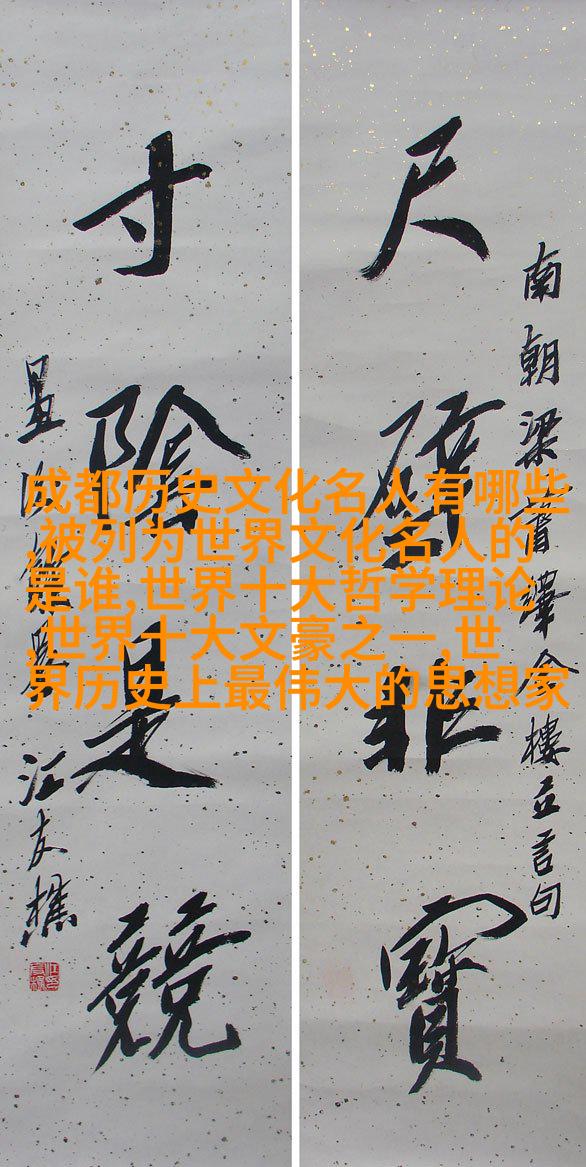 尺璧非寶
南朝梁
樓立言句
寸陰是競
江友樵
成都历史文化名人有哪些
,被列为世界文化名人的
是谁,世界十大哲学理论
,世界十大文豪之一,世
界历史上最伟大的思想家